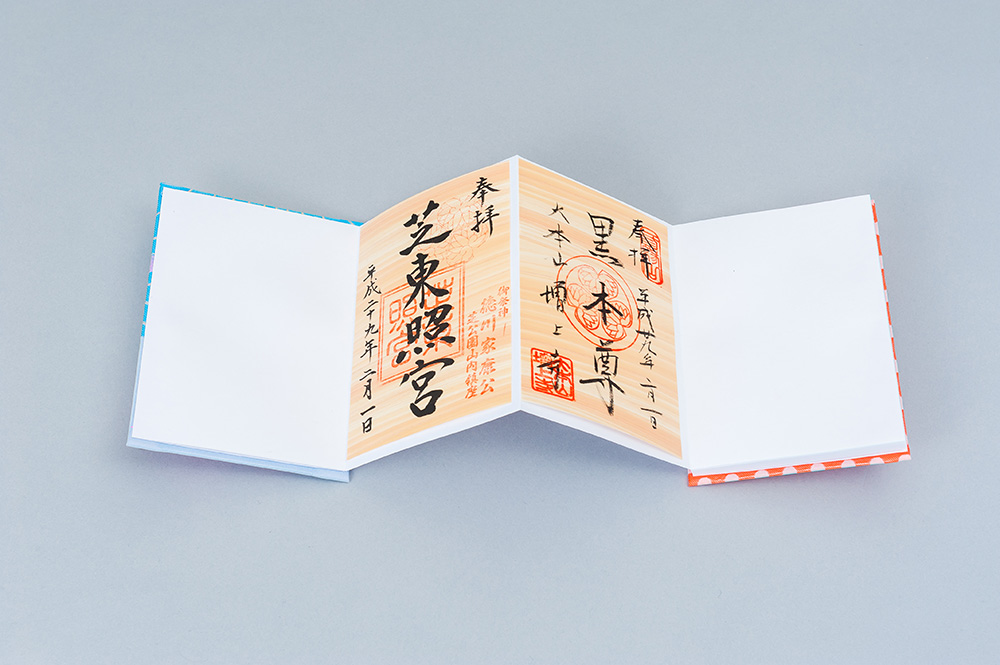 奉拝
黒本尊
平成廿九年 二月一日
大本山 増上寺
奉拝
芝東照宮
平成二十九年 二月一日
御祭神
徳川家康公
芝公園山内鎮座